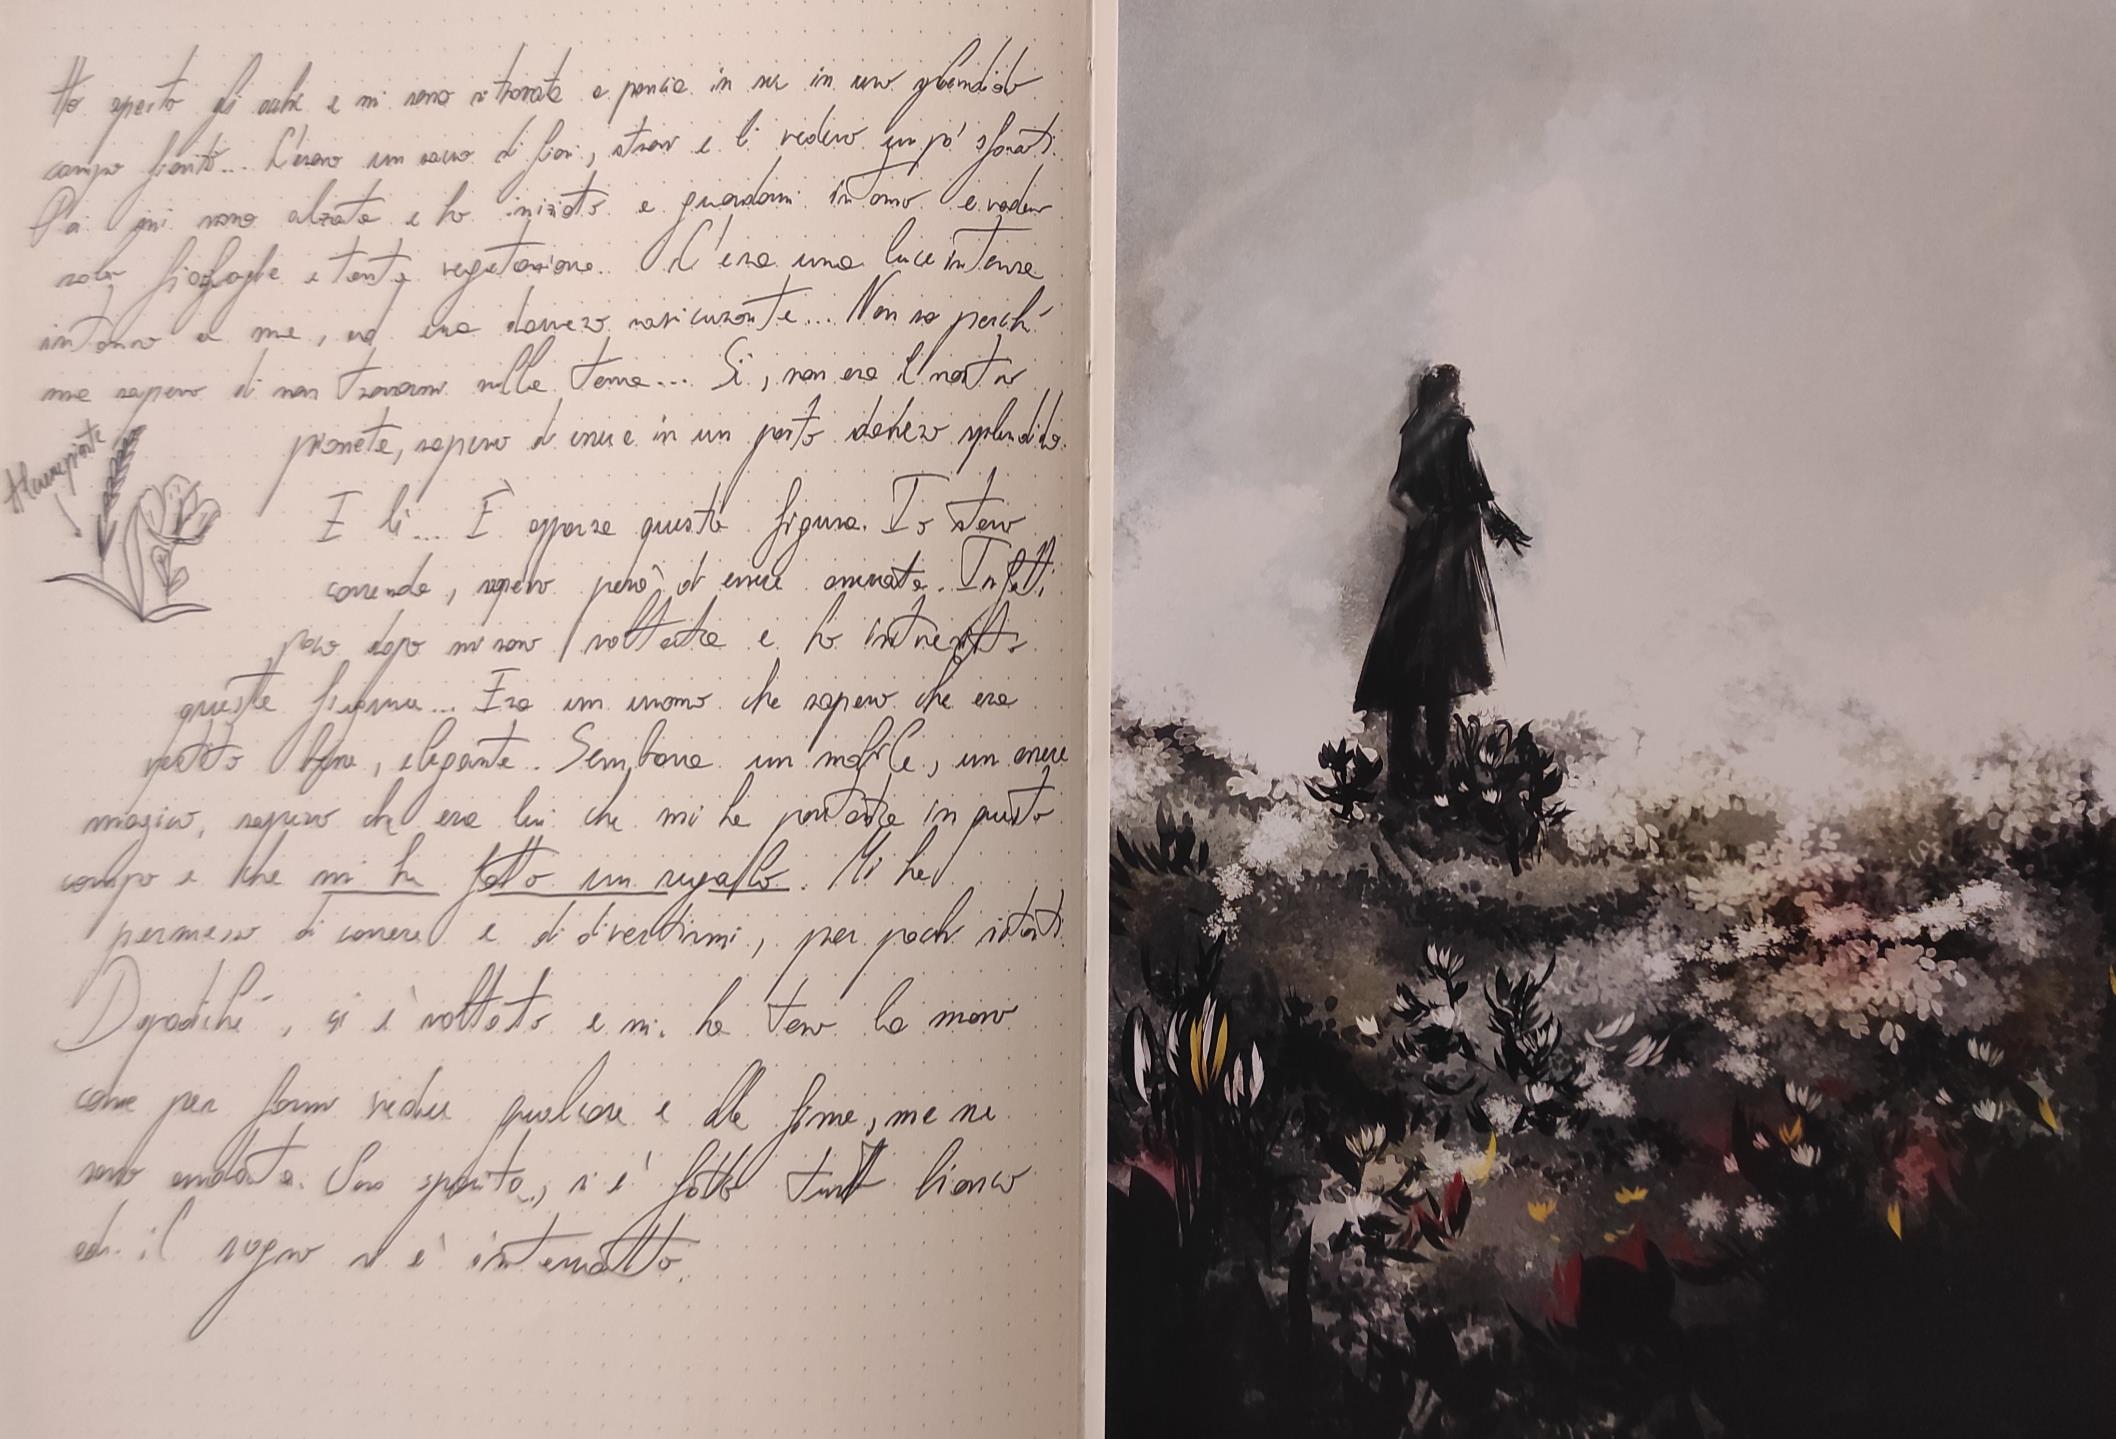 Ho aperto gli occhi e mi sono ritrovata a pancia in su in uno splendido
campo fiorito... C'erano un sacco di fiori, strani e li vedevo un pò sfocati.
Poi mi sono alzata e ho iniziato a guardarmi intorno e vedevo
solo foglie e tanta vegetazione. C'era una luce intensa
intorno a me, ed era davvero rassicurante... Non so perché
ma sapevo di non trovarmi sulla terra... Si, non era il nostro
pianeta, sapevo di essere in un posto davvero splendido.
Alcune piante
E lì... È apparsa questa figura. Io stavo
correndo, sapevo però di essere osservata. Infatti
poco dopo mi sono voltata e ho intravisto
questa figura... Era un uomo che sapevo che era
vestito bene, elegante. Sembrava un nobile, un essere
magico, sapevo che era lui che mi ha portata in questo
campo e che mi ha fatto un regallo. Mi ha
permesso di correre e di divertirmi, per pochi istanti.
Dopodiché, si è voltato e mi ha teso la mano
come per farmi vedere qualcosa e alla fine, me ne
sono andata. Son sparita, si è fatto tutto bianco
ed il sogno si è interrotto.